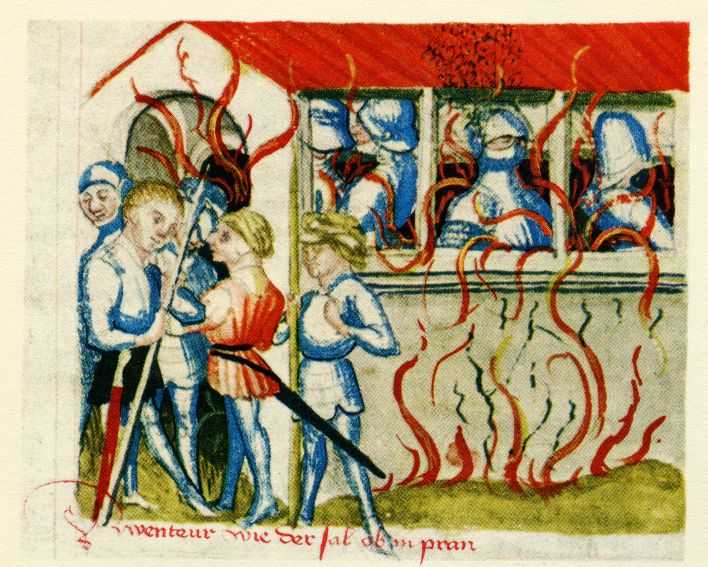 Awenteur wie der sal ob in pran